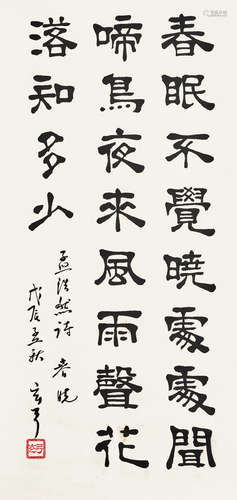 春眠不覺曉處處聞
啼鳥夜來風雨聲花
落知多少
孟浩然詩 春曉
戊辰孟秋